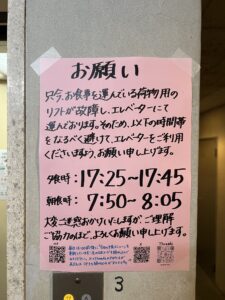 お願い
只今、お食事を運んでいる荷物用の
リフトが故障し、エレベーターにて
運んでおります。そのため、以下の時間帯
をなるべく避けて、エレベーターをご利用
くださいますよう、お願い申し上げます。
夕食時:17:25〜17:45
朝食時:7:50〜8:05
大変ご迷惑おかけいたしますが、ご理解
ご協力のほど、よろしくお願い申し上げます。
3